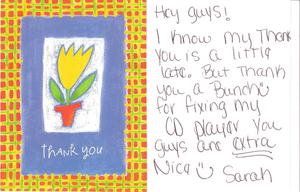 THANK YOU
Hey guys!
I know my Thank
You is a little
late. But Thank
you a Bunch
for fixing my
CD player You
guys are extra
Nice
Sarah